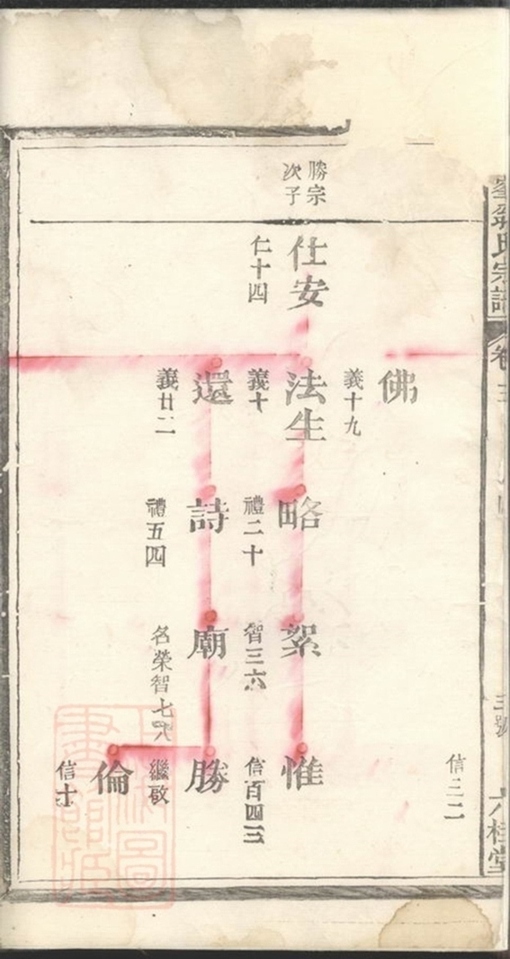 氏宗譜
卷三
三號
六桂堂
信三二
佛
義十九
勝宗
次子
仕安
仁十四
法生
義十
略
禮二十
絮
智三六
惟
信百四三
還
義廿二
詩
禮五四
廟
名榮智七八
勝
繼敬
倫